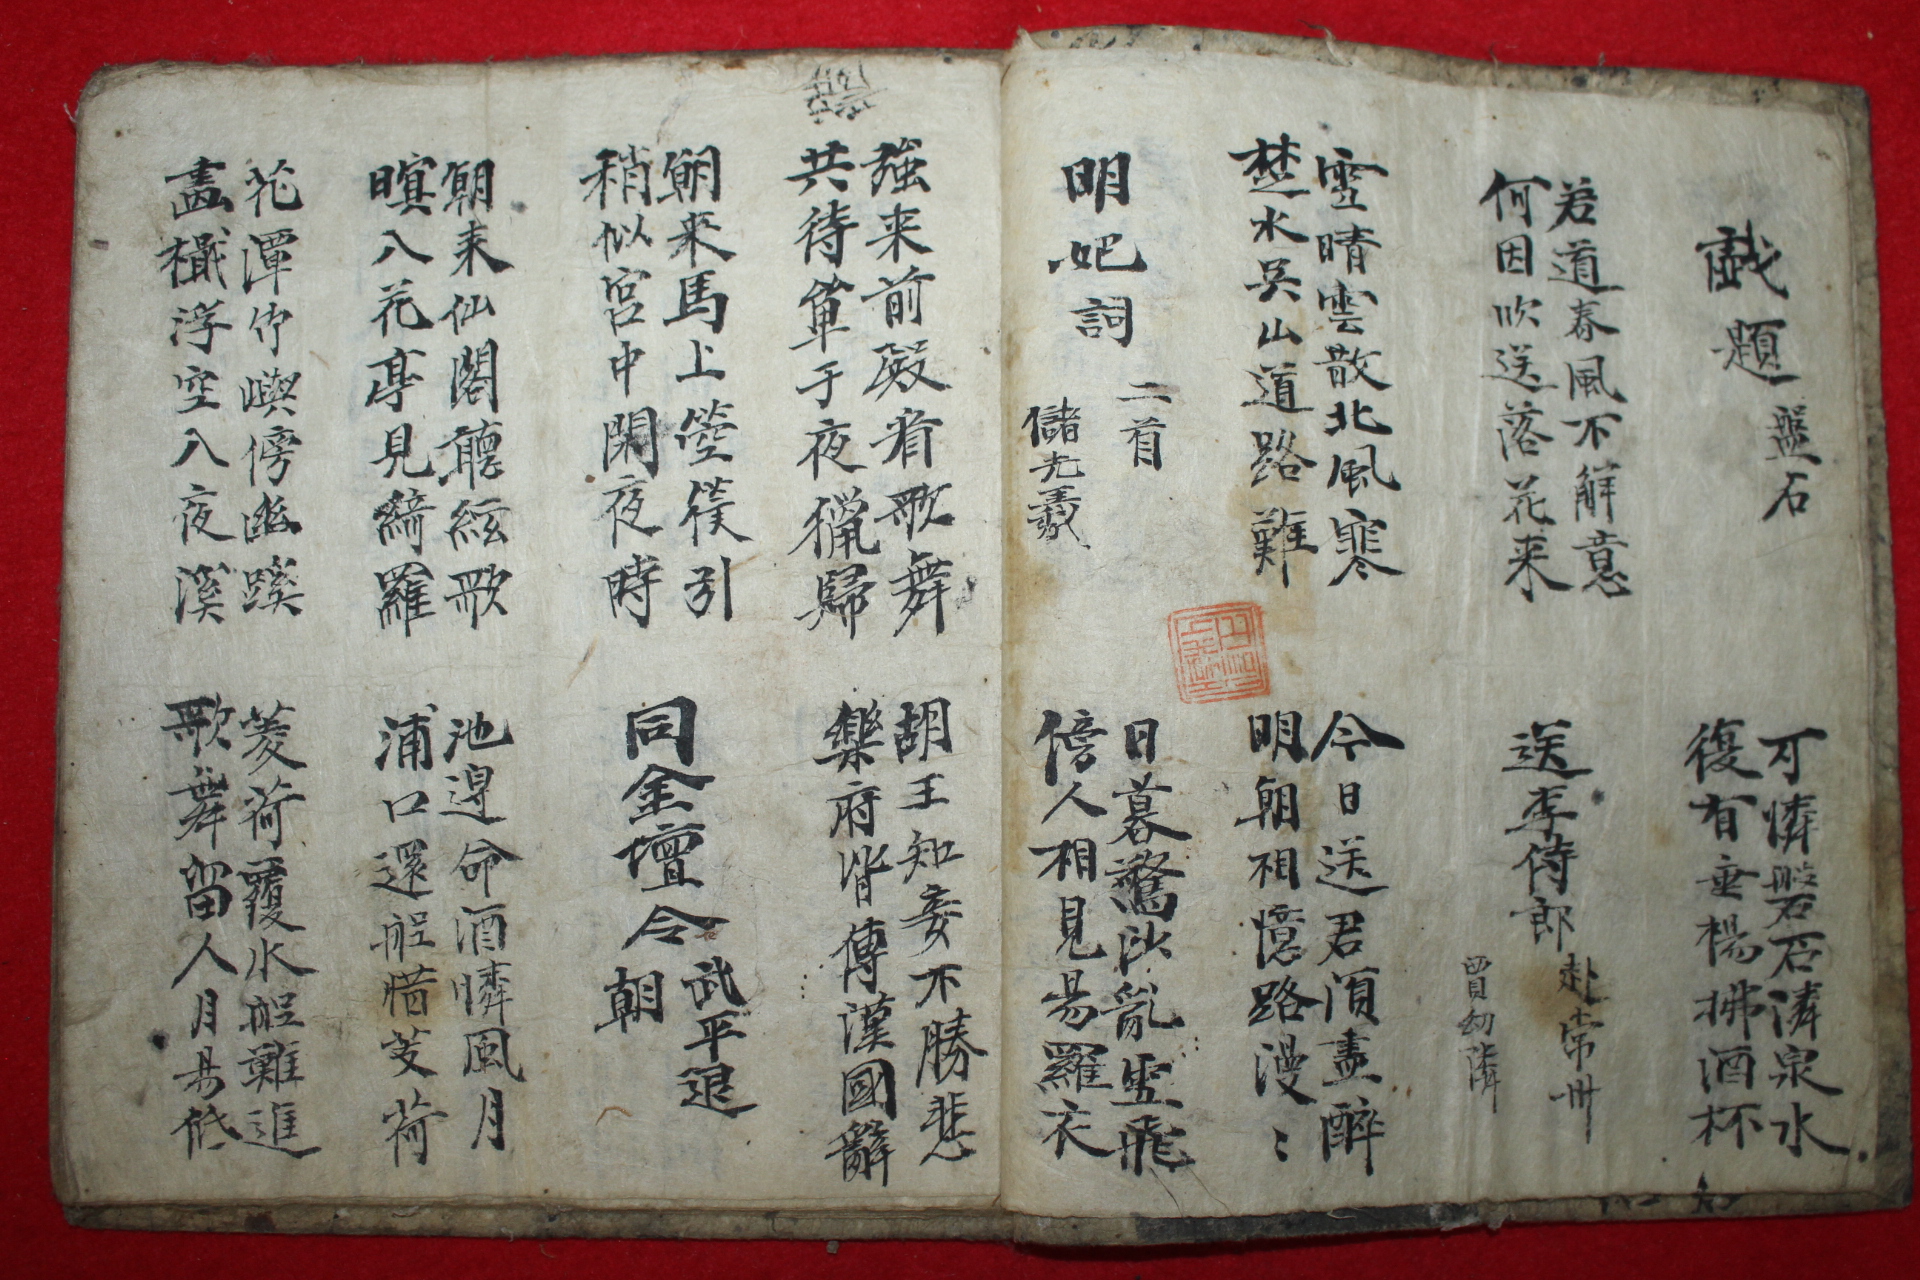 戱題 盤石
可憐磐石憐泉水
復有垂楊拂酒杯
若道春風不解意
何因吹送落花来
送李侍郎 赴常州
賈幼隣
雪晴雲散北風寒
楚水吳山道路難
今日送君須盡醉
明朝相憶路漫〻
明妃詞 二首
儲光羲
日暮驚沙亂雪飛
傍人相見易羅衣
強来前殿看歌舞
共待單于夜獵歸
胡王知妾不勝悲
樂府皆傳漢國辭
朝來馬上箜篌引
稍似宮中閑夜時
同金壇令 武平退
朝
朝来仙閣聽絃歌
暝入花亭見綺羅
池邊命酒憐風月
浦口還船惜芰荷
花潭竹嶼傍幽蹊
畫檝浮空入夜溪
菱荷覆水船難進
歌舞留人月易低